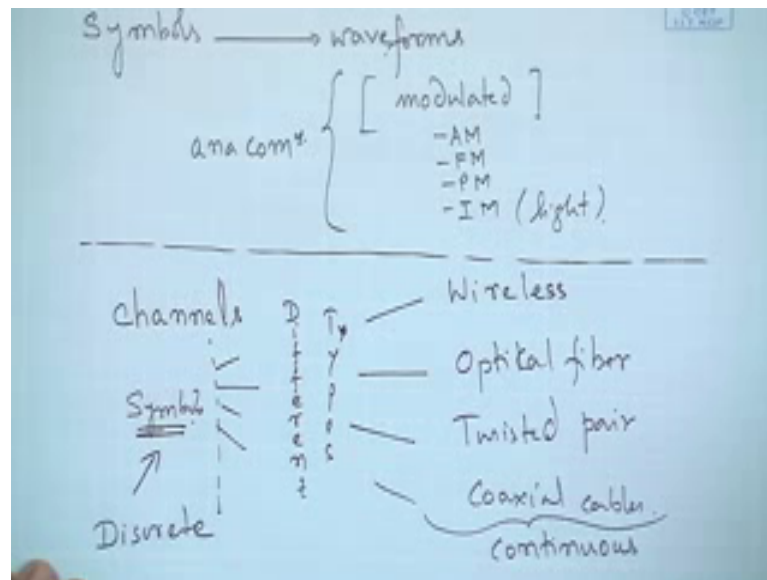 Symbols → waveforms
[ modulated ]
ana com
- AM
- FM
- PM
- IM (light)
Channels
Different
Types
Wireless
Optikal fiber
Twisted pair
Coaxial cables
continuous
Symbols
Discrete